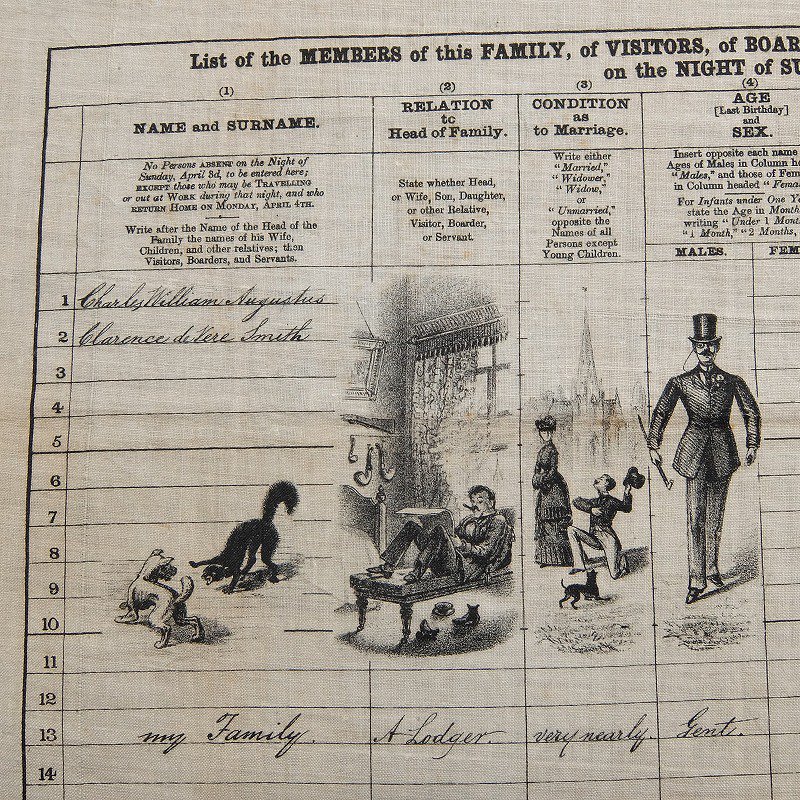 List of the MEMBERS of this FAMILY, of VISITORS, of BOAR
on the NIGHT of SU
(1)
(2)
(3)
(4)
NAME and SURNAME.
RELATION
to
Head of Family.
CONDITION
as
to Marriage.
AGE
[Last Birthday]
and
SEX.
No Persons ABSENT on the Night of
Sunday, April 3d, to be entered here;
EXCEPT those who may be TRAVELLING
or out at WORK during that night, and who
RETURN HOME ON MONDAY, APRIL 4TH.
Write after the Name of the Head of the
Family the names of his Wife,
Children, and other relatives; then
Visitors, Boarders, and Servants.
State whether Head,
or Wife, Son, Daughter,
or other Relative,
Visitor, Boarder,
or Servant.
Write either
"Married,"
"Widower,"
"Widow,"
or
"Unmarried,"
opposite the
Names of all
Persons except
Young Children.
Insert opposite each name
Ages of Males in Column he
"Males," and those of Fem
in Column headed "Fema
For Infants under One Ye
state the Age in Month
writing "Under 1 Mont
"1 Month," "2 Months,
MALES.
FEM
1 Charles William Augustus
2 Clarence de Vere Smith
3
4
5
6
7
8
9
10
11
12
13 my Family. A Lodger. very nearly. Gent.
14